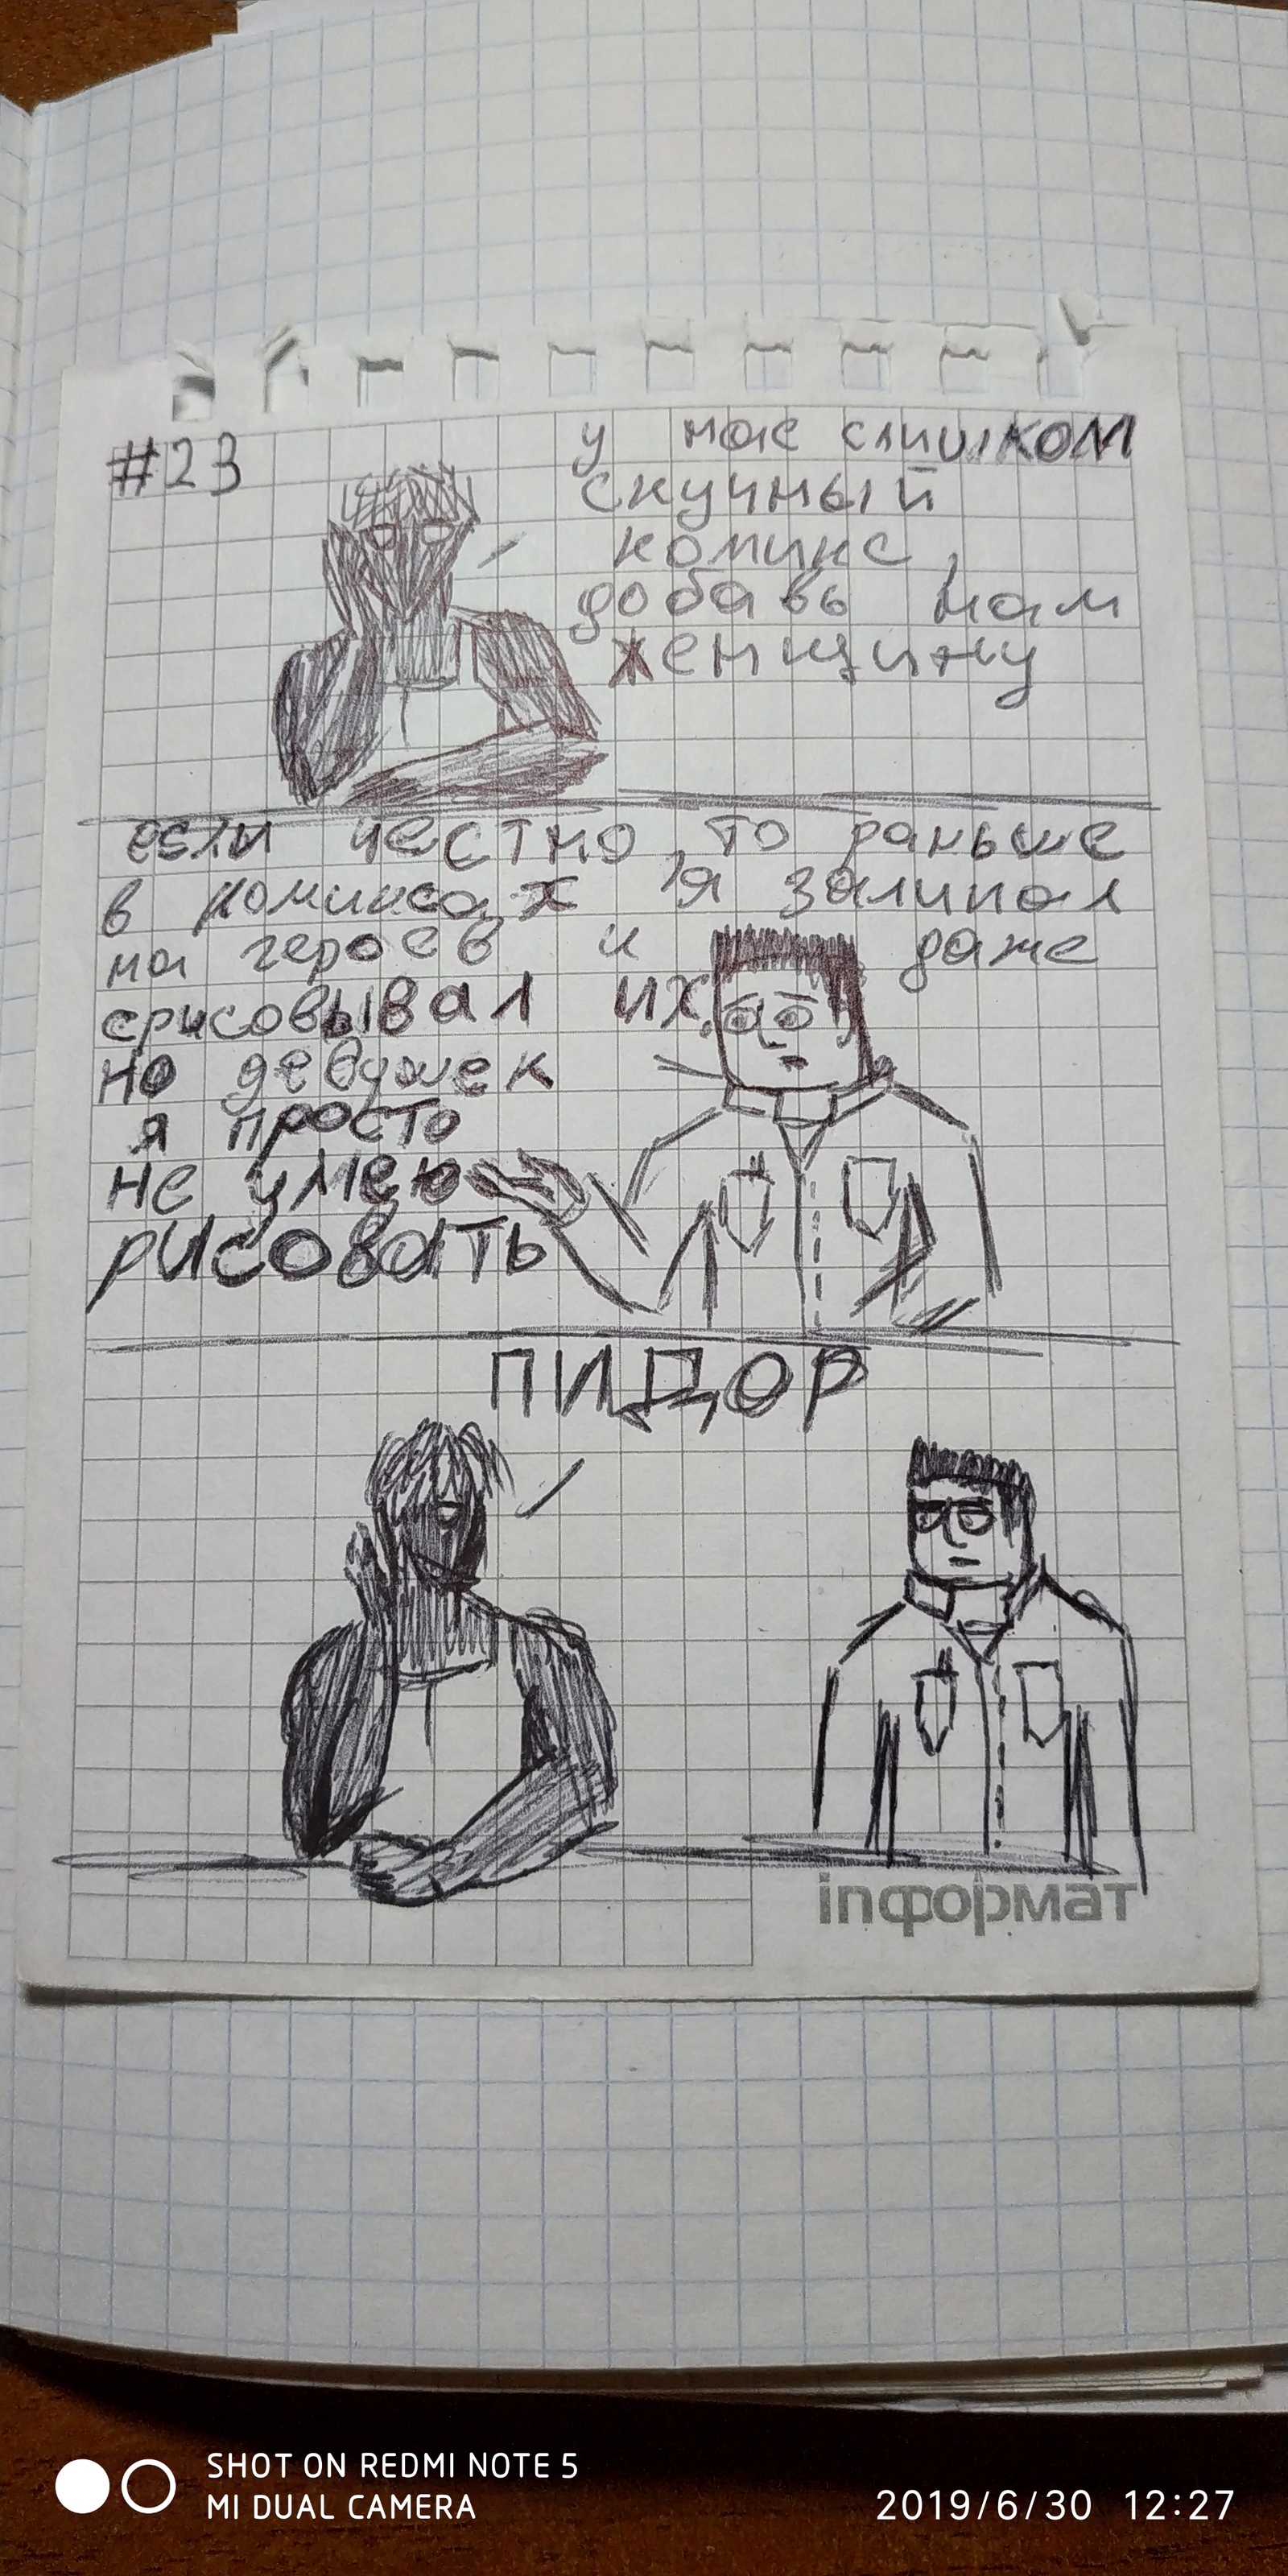 #23
у нас слишком
скучный
комикс,
добавь нам
женщину
если честно, то раньше
в комиксах я залипал
на героев и даже
срисовывал их.
но девушек
я просто
не умею
рисовать
ПИДОР
inформат
SHOT ON REDMI NOTE 5
MI DUAL CAMERA
2019/6/30 12:27